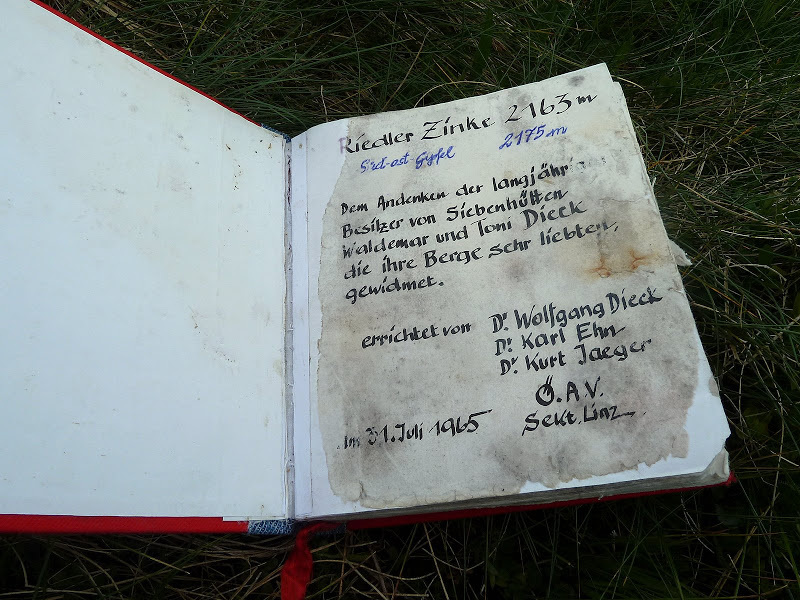 Riedler Zinke 2163 m
Süd-ost-Gipfel 2175 m
Dem Andenken der
Besitzer von Siebenhütten
Waldemar und Toni Dieck
die ihre Berge sehr liebten,
gewidmet.
errichtet von Dr. Wolfgang Dieck
Dr. Karl Ehn
Dr. Kurt Jaeger
Ö.A.V.
Sekt. Linz
Im 31. Juli 1965